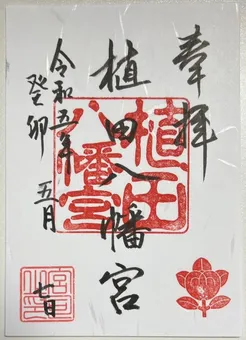 奉拝
植田八幡宮
令和五年 五月 七日
癸卯
植田
八幡宮